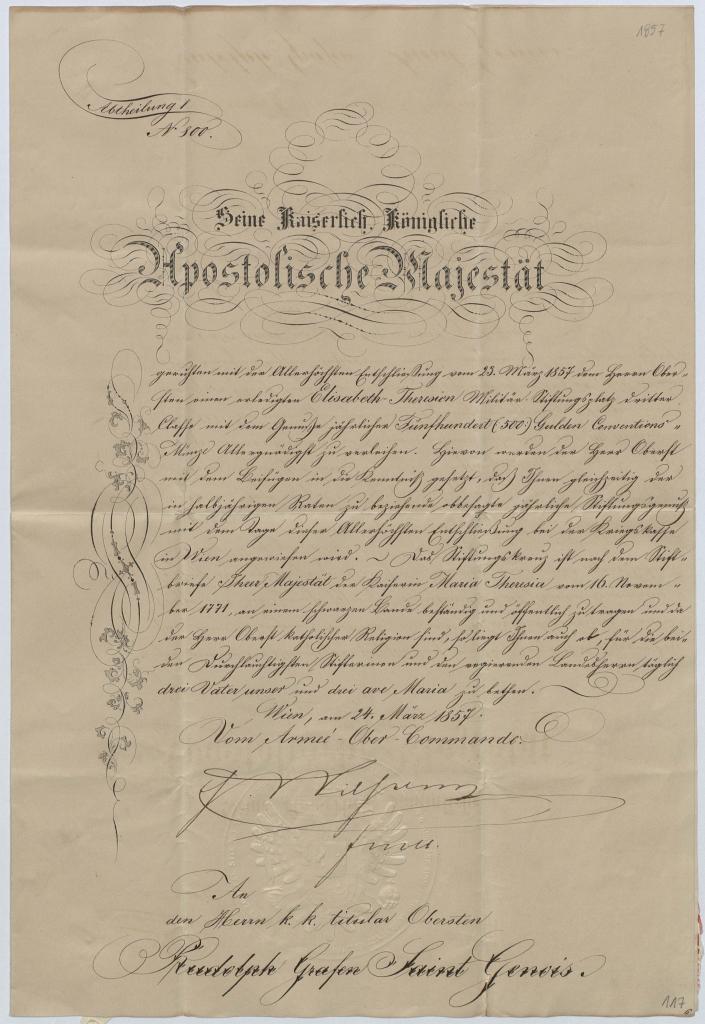 1857
Abtheilung 1
No 300.
Seine Kaiserlich, Königliche
Apostolische Majestät
geruhten mit der Allerhöchsten Entschließung vom 23. März 1857 dem Herrn Ober-
sten einen erledigten Elisabeth-Theresien Militär Stiftungsplatz dritter
Classe mit dem Genuße jährlicher Fünfhundert (500:) Gulden Conventions-
Münze Allergnädigst zu verleihen. Hievon werden der Herr Oberst
mit dem Beifügen in die Kenntniß gesetzt, daß Ihnen gleichzeitig der
in halbjährigen Raten zu beziehende obbesagte jährliche Stiftungsgenuß
mit dem Tage dieser Allerhöchsten Entschließung bei der Kriegskasse
in Wien angewiesen wird. ~ Das Stiftungskreuz ist nach dem Stift-
briefe Ihrer Majestät der Kaiserin Maria Theresia vom 16. Novem-
ber 1771, an einem schwarzen Bande beständig und öffentlich zu tragen und da
der Herr Oberst katholischer Religion sind, so liegt Ihnen auch ob, für die bei-
den Durchlauchtigsten Stifterinen und den regierenden Landesherrn täglich
drei Vater unser und drei ave Maria zu bethen.
Wien, am 24. März 1857.
Vom Armeé-Ober-Commando:
Wilhelm
An
den Herrn k. k. titular Obersten
Rudolph Grafen Saint Genois.
117